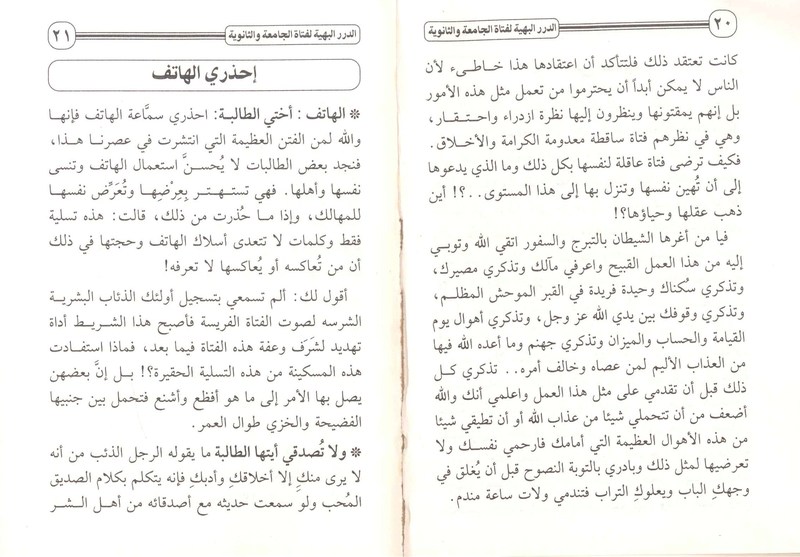 ٢٠
الدرر البهية لفتاة الجامعة والثانوية
كانت تعتقد ذلك فلتتأكد أن اعتقادها هذا خاطىء لأن
الناس لا يمكن أبداً أن يحترموا من تعمل مثل هذه الأمور
بل إنهم يمقتونها وينظرون إليها نظرة ازدراء واحتقار،
وهي في نظرهم فتاة ساقطة معدومة الكرامة والأخلاق.
فكيف ترضى فتاة عاقلة لنفسها بكل ذلك وما الذي يدعوها
إلى أن تُهين نفسها وتنزل بها إلى هذا المستوى..؟! أين
ذهب عقلها وحياؤها؟!
فيا من أغرها الشيطان بالتبرج والسفور اتقي الله وتوبي
إليه من هذا العمل القبيح واعرفي مآلك وتذكري مصيرك،
وتذكري سُكناك وحيدة فريدة في القبر الموحش المظلم،
وتذكري وقوفك بين يدي الله عز وجل، وتذكري أهوال يوم
القيامة والحساب والميزان وتذكري جهنم وما اعده الله فيها
من العذاب الأليم لمن عصاه وخالف أمره.. تذكري كل
ذلك قبل أن تقدمي على مثل هذا العمل واعلمي أنك والله
أضعف من أن تتحملي شيئا من عذاب الله أو أن تطيقي شيئا
من هذه الأهوال العظيمة التي أمامك فارحمي نفسك ولا
تعرضيها لمثل ذلك وبادري بالتوبة النصوح قبل أن يُغلق في
وجهكِ الباب ويعلوكِ التراب فتندمي ولات ساعة مندم.
الدرر البهية لفتاة الجامعة والثانوية
٢١
إحذري الهاتف
* الهاتف : أختي الطالبة: احذري سمَّاعة الهاتف فإنها
والله لمن الفتن العظيمة التي انتشرت في عصرنا هذا،
فنجد بعض الطالبات لا يُحسنَّ استعمال الهاتف وتنسى
نفسها وأهلها. فهي تستهتر بِعِرْضِها وتُعَرِّض نفسها
للمهالك، وإذا ما حُذرت من ذلك، قالت: هذه تسلية
فقط وكلمات لا تتعدى أسلاك الهاتف وحجتها في ذلك
أن من تُعاكسه أو يُعاكسها لا تعرفه!
أقول لك: ألم تسمعي بتسجيل أولئك الذئاب البشرية
الشرسه لصوت الفتاة الفريسة فأصبح هذا الشريط أداة
تهديد لشرَف وعفة هذه الفتاة فيما بعد، فماذا استفادت
هذه المسكينة من هذه التسلية الحقيرة؟! بل إنَّ بعضهن
يصل بها الأمر إلى ما هو أفظع وأشنع فتحمل بين جنبيها
الفضيحة والخزي طوال العمر.
* ولا تُصدقي أيتها الطالبة ما يقوله الرجل الذئب من أنه
لا يرى منكِ إلا أخلاقكِ وأدبكِ فإنه يتكلم بكلام الصديق
المُحب ولو سمعت حديثه مع أصدقائه من أهل الشر